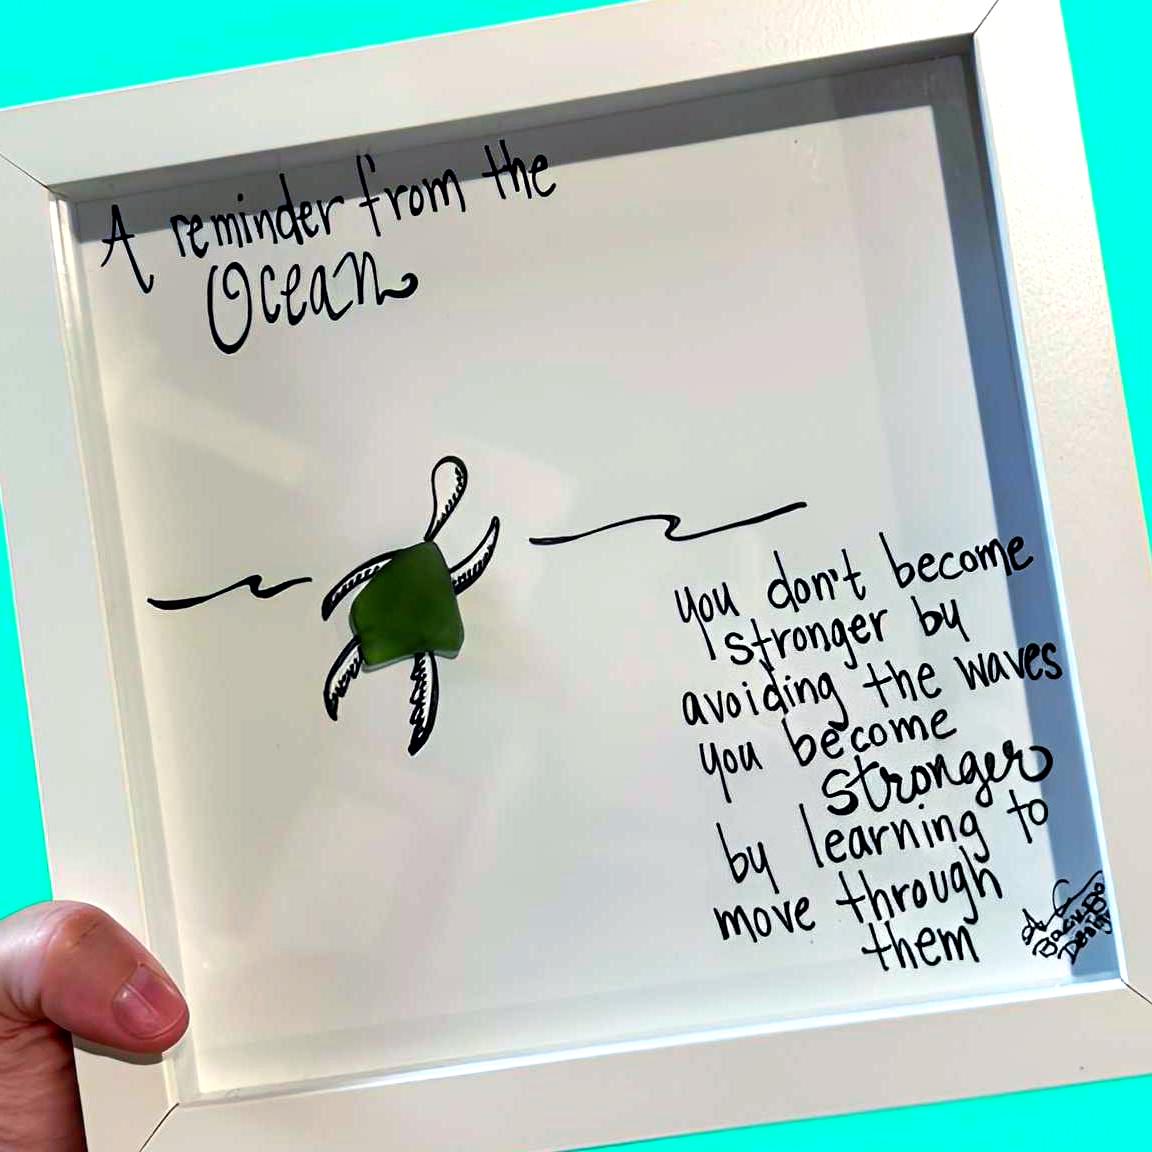 A reminder from the
Ocean
you don't become
stronger by
avoiding the waves
you become
stronger
by learning to
move through
them